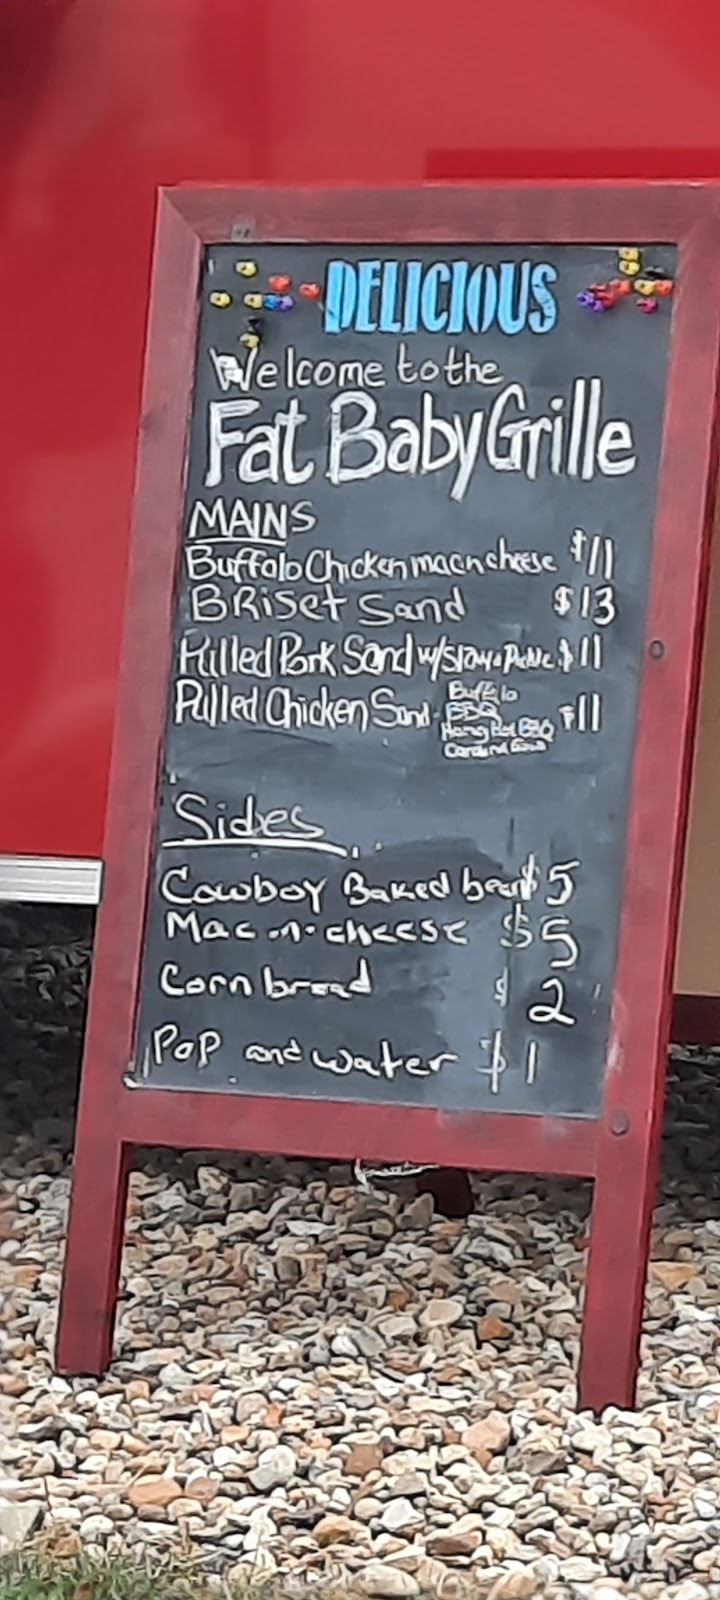 DELICIOUS
Welcome to the
Fat Baby Grille
MAINS
Buffalo Chicken mac n cheese $11
BRiset Sand $13
Pulled Pork Sand w/slaw + Pickle $11
Pulled Chicken Sand - $11
Buffalo
BBQ
Honey Hot BBQ
Carolina Gold
Sides
Cowboy Baked beans $5
Mac-n-cheese $5
Corn bread $2
Pop and water $1